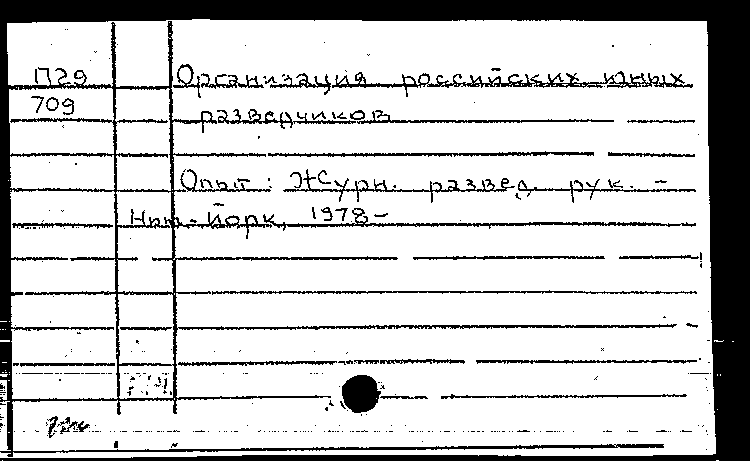 П29
709
Организация российских юных
разведчиков
Опыт : Журн. развед. рук. –
Нью-Йорк, 1978–